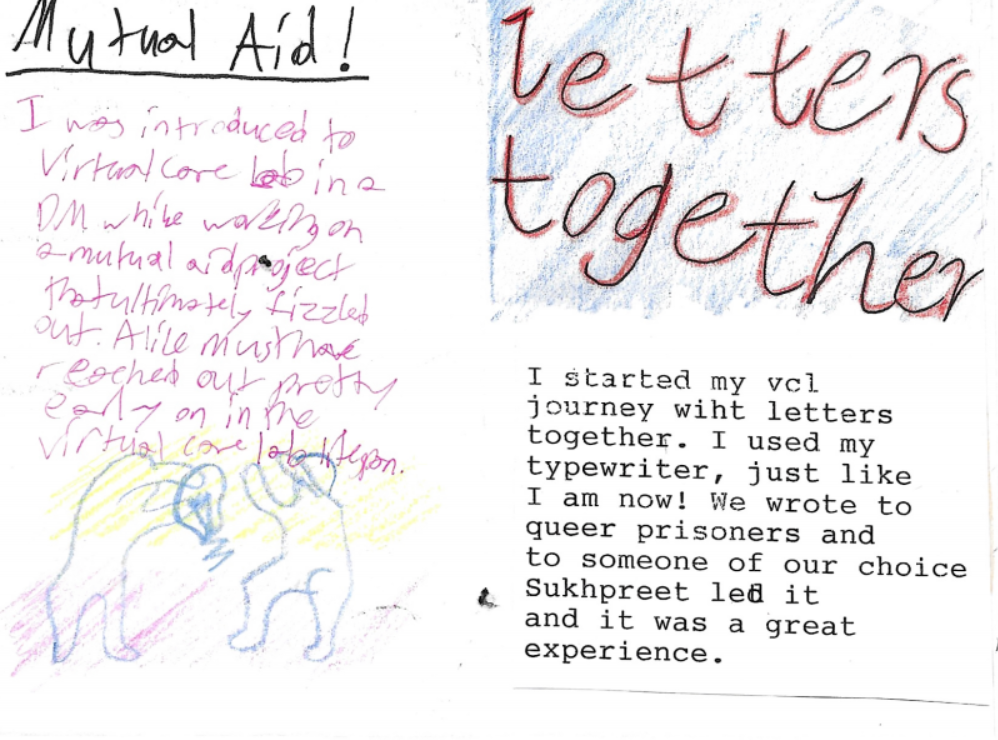 Mutual Aid!
I was introduced to
Virtual care lab in a
DM while working on
a mutual aid project
that ultimately fizzled
out. Alice must have
reached out pretty
early on in the
virtual care lab
letters
together
I started my vcl
journey wiht letters
together. I used my
typewriter, just like
I am now! We wrote to
queer prisoners and
to someone of our choice
Sukhpreet led it
and it was a great
experience.